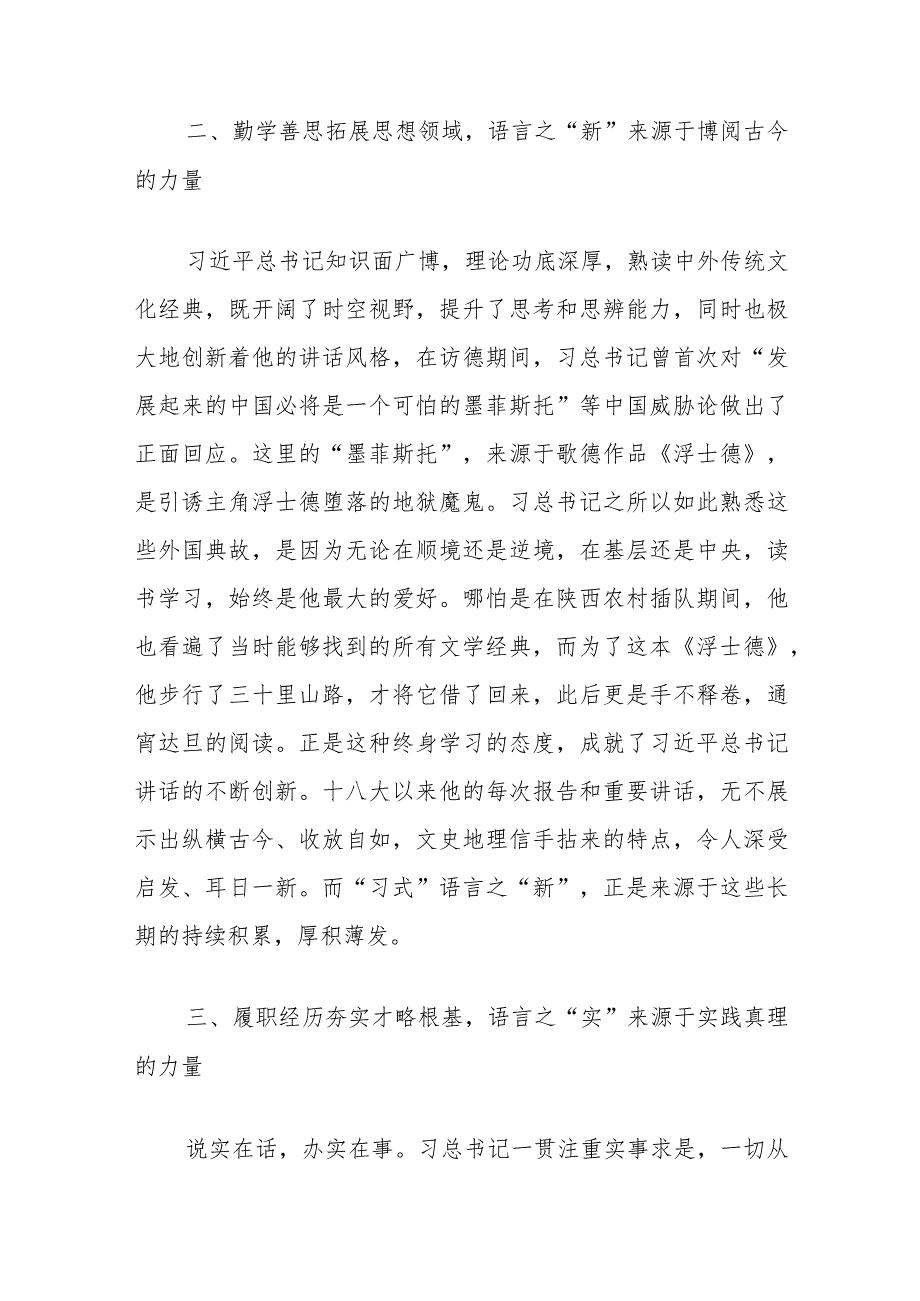 二、勤学善思拓展思想领域，语言之“新”来源于博阅古今
的力量
习近平总书记知识面广博，理论功底深厚，熟读中外传统文
化经典，既开阔了时空视野，提升了思考和思辨能力，同时也极
大地创新着他的讲话风格，在访德期间，习总书记曾首次对“发
展起来的中国必将是一个可怕的墨菲斯托”等中国威胁论做出了
正面回应。这里的“墨菲斯托”，来源于歌德作品《浮士德》，
是引诱主角浮士德堕落的地狱魔鬼。习总书记之所以如此熟悉这
些外国典故，是因为无论在顺境还是逆境，在基层还是中央，读
书学习，始终是他最大的爱好。哪怕是在陕西农村插队期间，他
也看遍了当时能够找到的所有文学经典，而为了这本《浮士德》，
他步行了三十里山路，才将它借了回来，此后更是手不释卷，通
宵达旦的阅读。正是这种终身学习的态度，成就了习近平总书记
讲话的不断创新。十八大以来他的每次报告和重要讲话，无不展
示出纵横古今、收放自如，文史地理信手拈来的特点，令人深受
启发、耳日一新。而“习式”语言之“新”，正是来源于这些长
期的持续积累，厚积薄发。
三、履职经历夯实才略根基，语言之“实”来源于实践真理
的力量
说实在话，办实在事。习总书记一贯注重实事求是，一切从